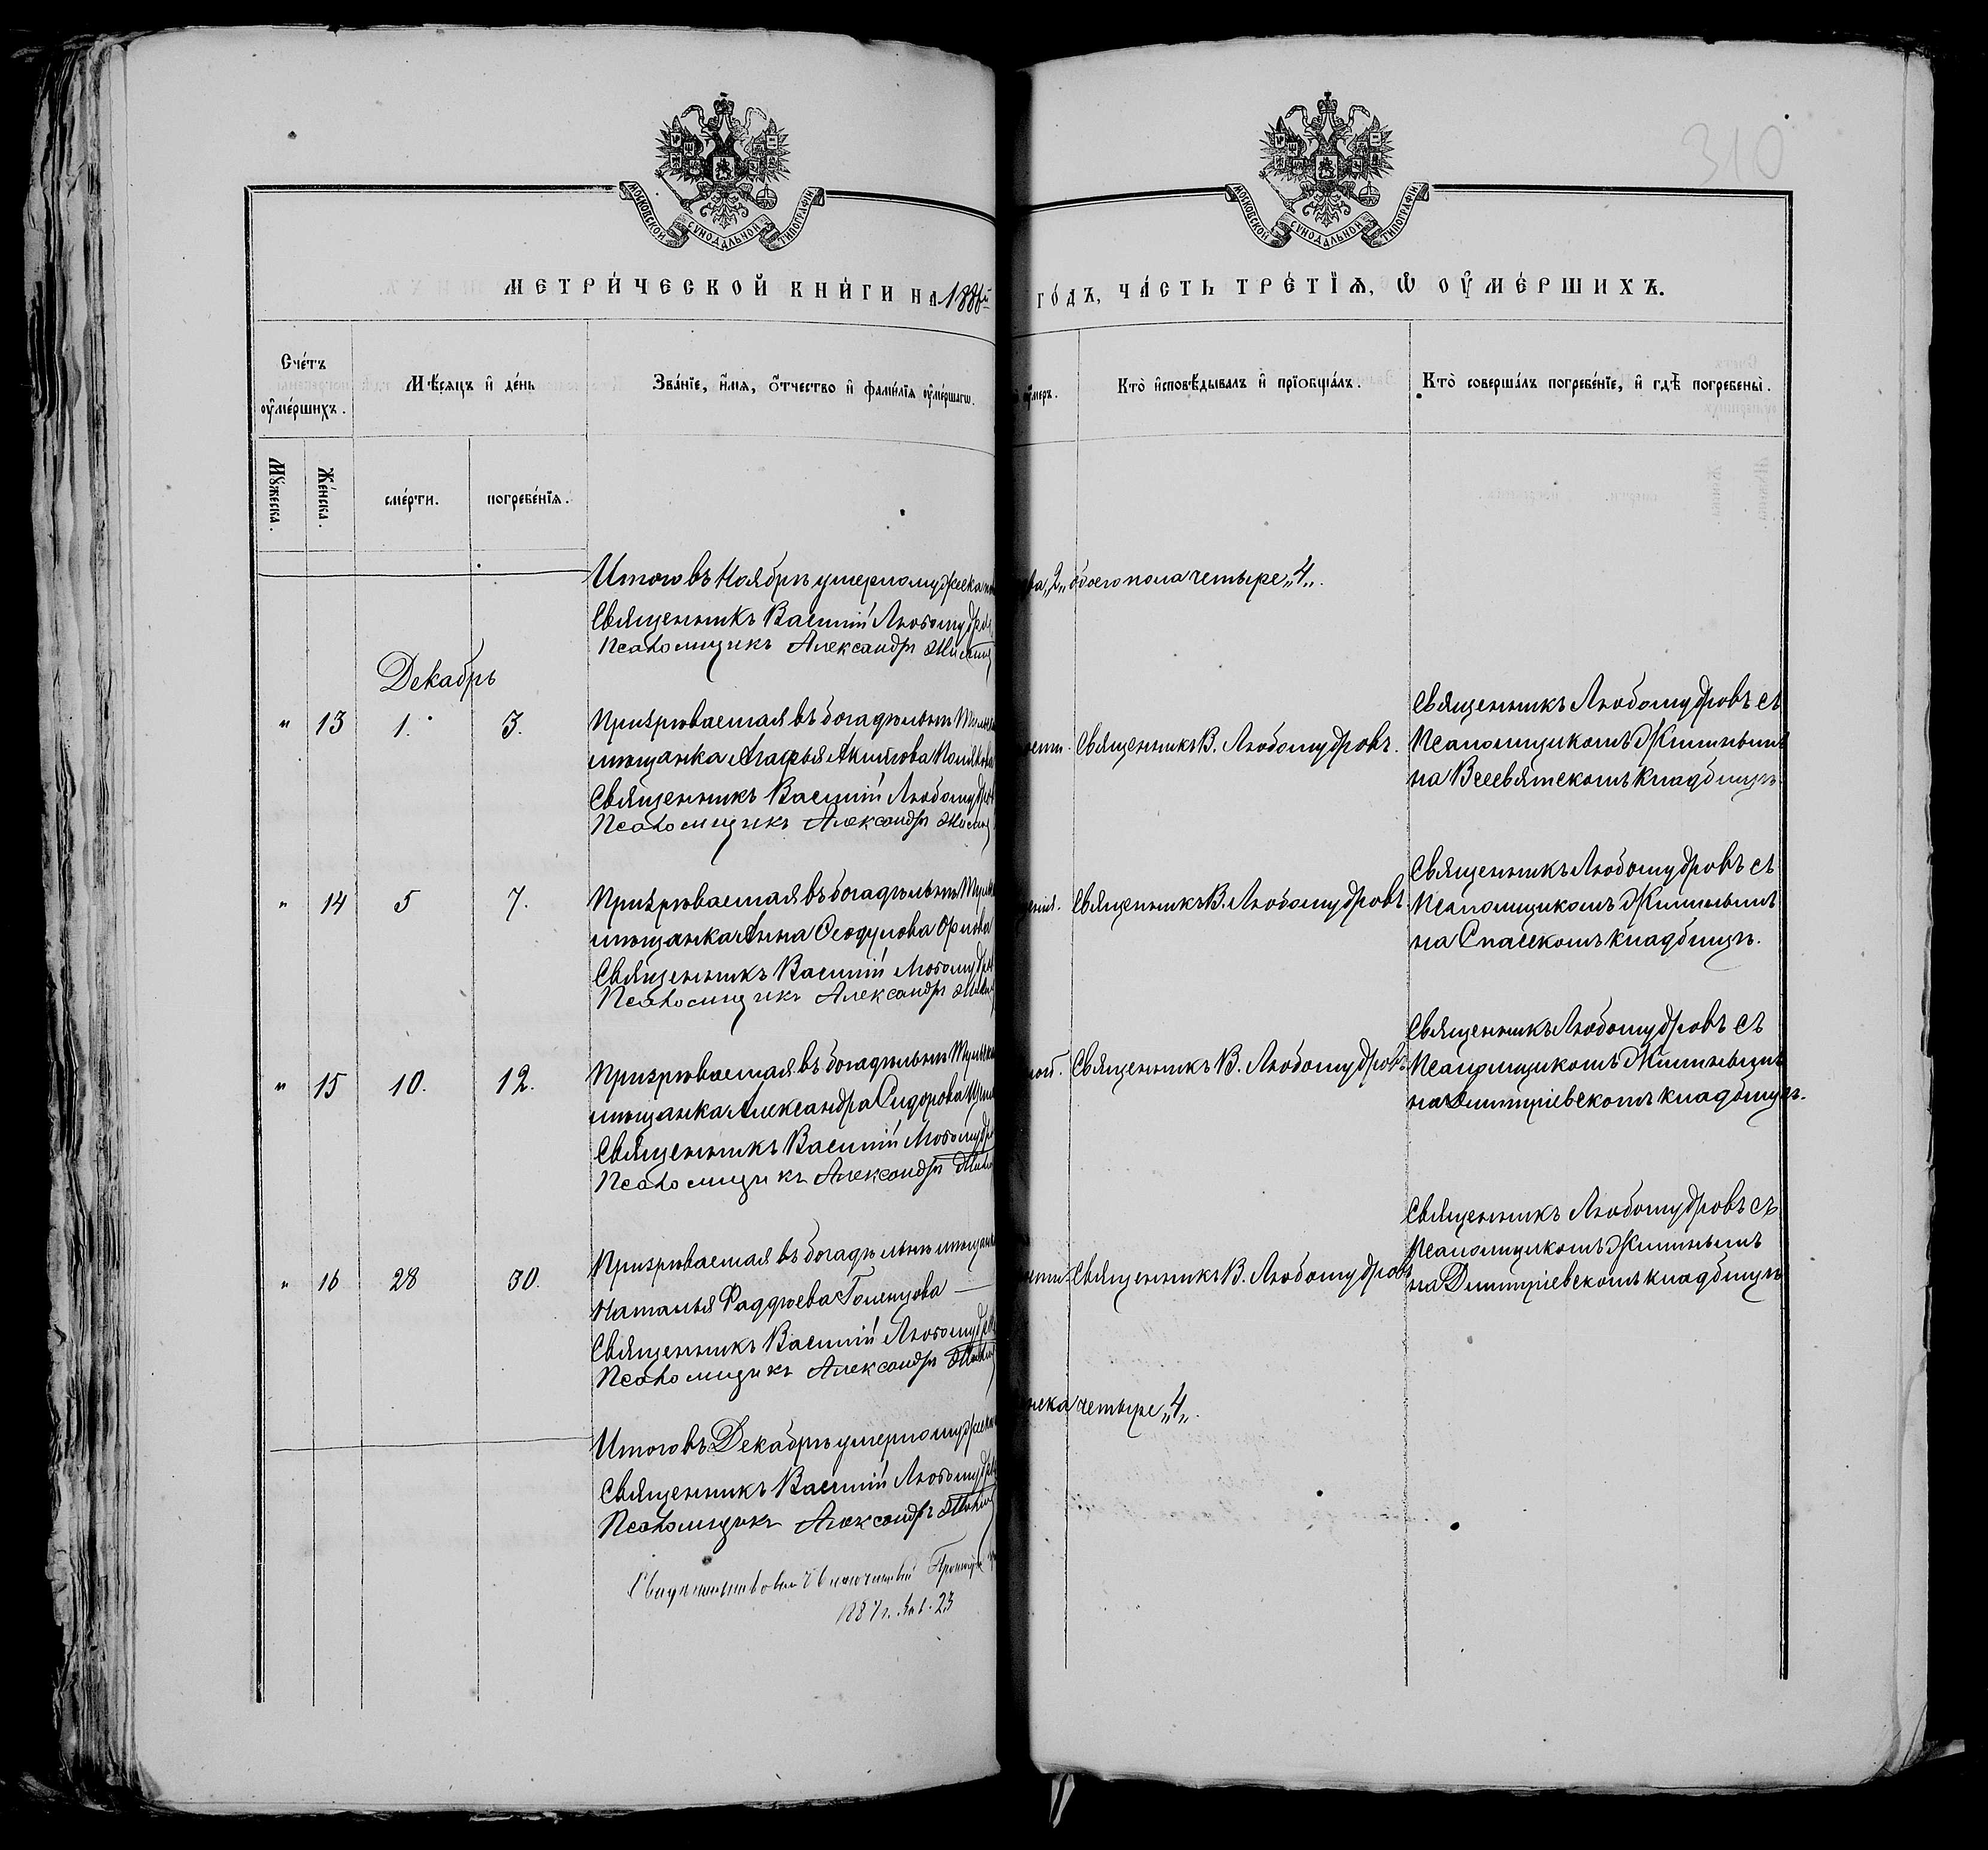 310
МОСКОВСКОЙ СѴНОДАЛЬНОЙ ТИПОГРАФІИ
МОСКОВСКОЙ СѴНОДАЛЬНОЙ ТИПОГРАФІИ
МЕТРИ́ЧЕСКОЙ КНИ́ГИ НА 1886й
ГО́ДЪ, ЧА́СТЬ ТРЕ́ТІѦ, Ѡ҆ ОУ҆МЕ́РШИХЪ.
Сче́тъ оу҆ме́ршихъ.
Мѣ́сяцъ и҆ де́нь
Зва́нїе, и҆́мя, ѻ҆́тчество и҆ фами́лїя оу҆ме́ршагѡ.
оу҆́меръ.
Кто̀ и҆сповѣ́дывалъ и҆ прїобща́лъ.
Кто̀ соверша́лъ погребе́нїе, и҆ гдѣ̀ погребены̀.
Мꙋ́жеска.
Же́нска.
сме́рти.
погребе́нїя.
Итого въ Ноябрѣ умерло мужеска
2„ обоего пола четыре „4„.
Священникъ Василій Любомудров
Псаломщикъ Александръ
Декабрь
„ 13 1. 3. Призрѣваемая въ богадѣльнѣ
мѣщанка Агафья Акимова
Священникъ Василій Любомудров
Псаломщикъ Александръ
Священникъ В. Любомудровъ.
Священникъ Любомудровъ съ
Псаломщикомъ Жилинымъ
на Всесвятскомъ кладбищѣ
„ 14 5 7. Призрѣваемая въ богадѣльнѣ
мѣщанка Анна Ѳеодулова Орлова
Священникъ Василій Любомудров
Псаломщикъ Александръ
Священникъ В. Любомудровъ
Священникъ Любомудровъ съ
Псаломщикомъ Жилинымъ
на Спасскомъ кладбищѣ.
„ 15 10. 12. Призрѣваемая въ богадѣльнѣ
мѣщанка Александра Сидорова
Священникъ Василій Любомудро
Псаломщикъ Александръ
Священникъ В. Любомудровъ
Священникъ Любомудровъ съ
Псаломщикомъ Жилинымъ
на Димитріевскомъ кладбищѣ.
„ 16 28 30. Призрѣваемая въ богадѣльнѣ
Наталья Фаддѣева Голенцова
Священникъ Василій Любомудров
Псаломщикъ Александръ
Священникъ В. Любомудровъ
Священникъ Любомудровъ съ
Псаломщикомъ Жилинымъ
на Димитріевскомъ кладбищѣ
Итого въ Декабрѣ умерло
четыре „4„.
Священникъ Василій Любомудров
Псаломщикъ Александръ
1887 г. Янв. 23